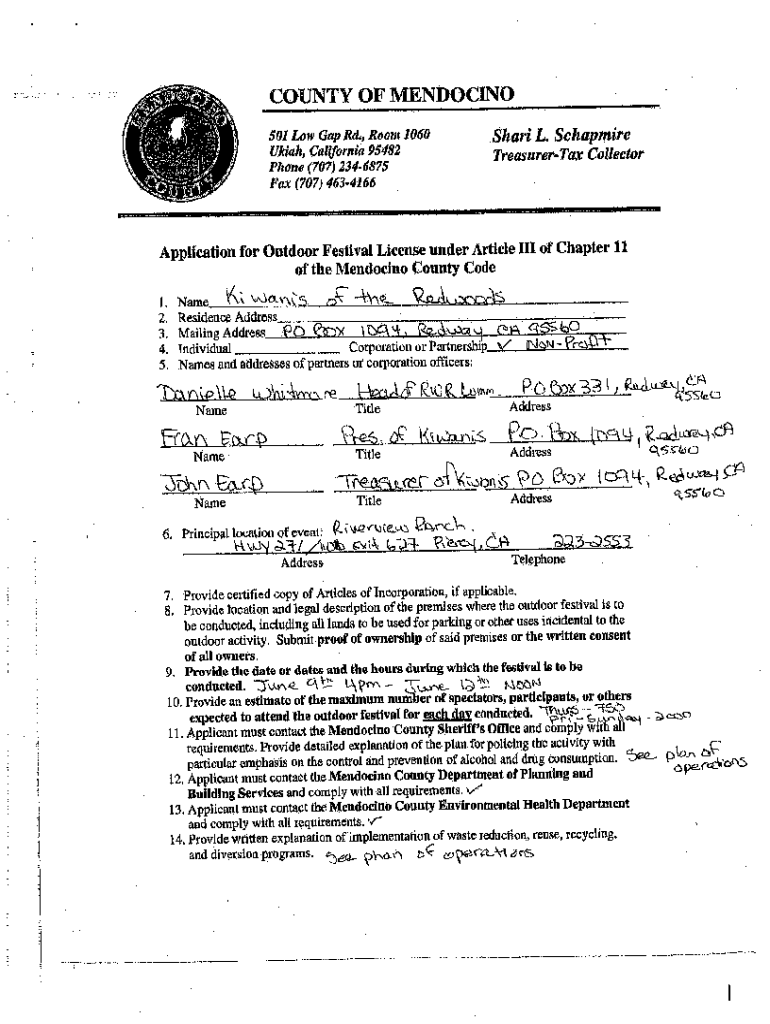 COUNTY OF MENDOCINO
MENDOCINO
COUNTY
501 Low Gap Rd., Room 1060
Ukiah, California 95482
Phone (707) 234-6875
Fax (707) 463-4166
Shari L. Schapmire
Treasurer-Tax Collector
Application for Outdoor Festival License under Article III of Chapter 11
of the Mendocino County Code
1. Name Kiwanis of the Redwoods
2. Residence Address
3. Mailing Address PO Box 1094, Redway CA 95560
4. Individual Corporation or Partnership ✓ Non-Profit
5. Names and addresses of partners or corporation officers:
Danielle Whitmore Head of RWR Comm. PO Box 331, Redway, CA 95560
Name Title Address
Fran Earp Pres. of Kiwanis P.O. Box 1094, Redway, CA 95560
Name Title Address
John Earp Treasurer of Kiwanis PO Box 1094, Redway CA 95560
Name Title Address
6. Principal location of event: Riverview Ranch.
HWY 271/ exit 627 Piercy, CA 223-2553
Address Telephone
7. Provide certified copy of Articles of Incorporation, if applicable.
8. Provide location and legal description of the premises where the outdoor festival is to
be conducted, including all lands to be used for parking or other uses incidental to the
outdoor activity. Submit proof of ownership of said premises or the written consent
of all owners.
9. Provide the date or dates and the hours during which the festival is to be
conducted. June 9th 4pm - June 12th NOON
10. Provide an estimate of the maximum number of spectators, participants, or others
expected to attend the outdoor festival for each day conducted. Thurs - 750
Fri - Sunday - 2000
11. Applicant must contact the Mendocino County Sheriff's Office and comply with all
requirements. Provide detailed explanation of the plan for policing the activity with
particular emphasis on the control and prevention of alcohol and drug consumption. See plan of operations
12. Applicant must contact the Mendocino County Department of Planning and
Building Services and comply with all requirements. ✓
13. Applicant must contact the Mendocino County Environmental Health Department
and comply with all requirements. ✓
14. Provide written explanation of implementation of waste reduction, reuse, recycling,
and diversion programs. See plan of operations
1